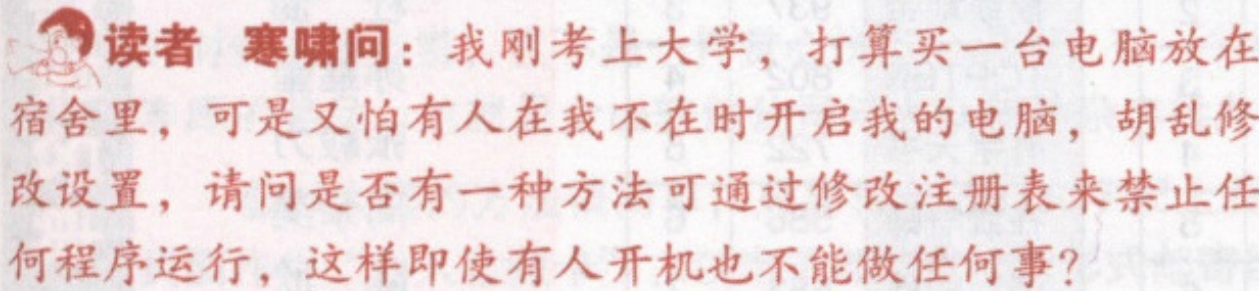 读者 寒啸问：我刚考上大学，打算买一台电脑放在
宿舍里，可是又怕有人在我不在时开启我的电脑，胡乱修
改设置，请问是否有一种方法可通过修改注册表来禁止任
何程序运行，这样即使有人开机也不能做任何事？